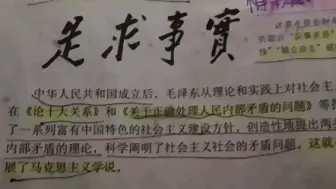 是求事實
中华人民共和国成立后，毛泽东从理论和实践上对社会主
在《论十大关系》和《关于正确处理人民内部矛盾的问题》等
了一系列富有中国特色的社会主义建设方针，创造性地提出两
内部矛盾的理论，科学阐明了社会主义社会的矛盾问题。这
展了马克思主义学说。